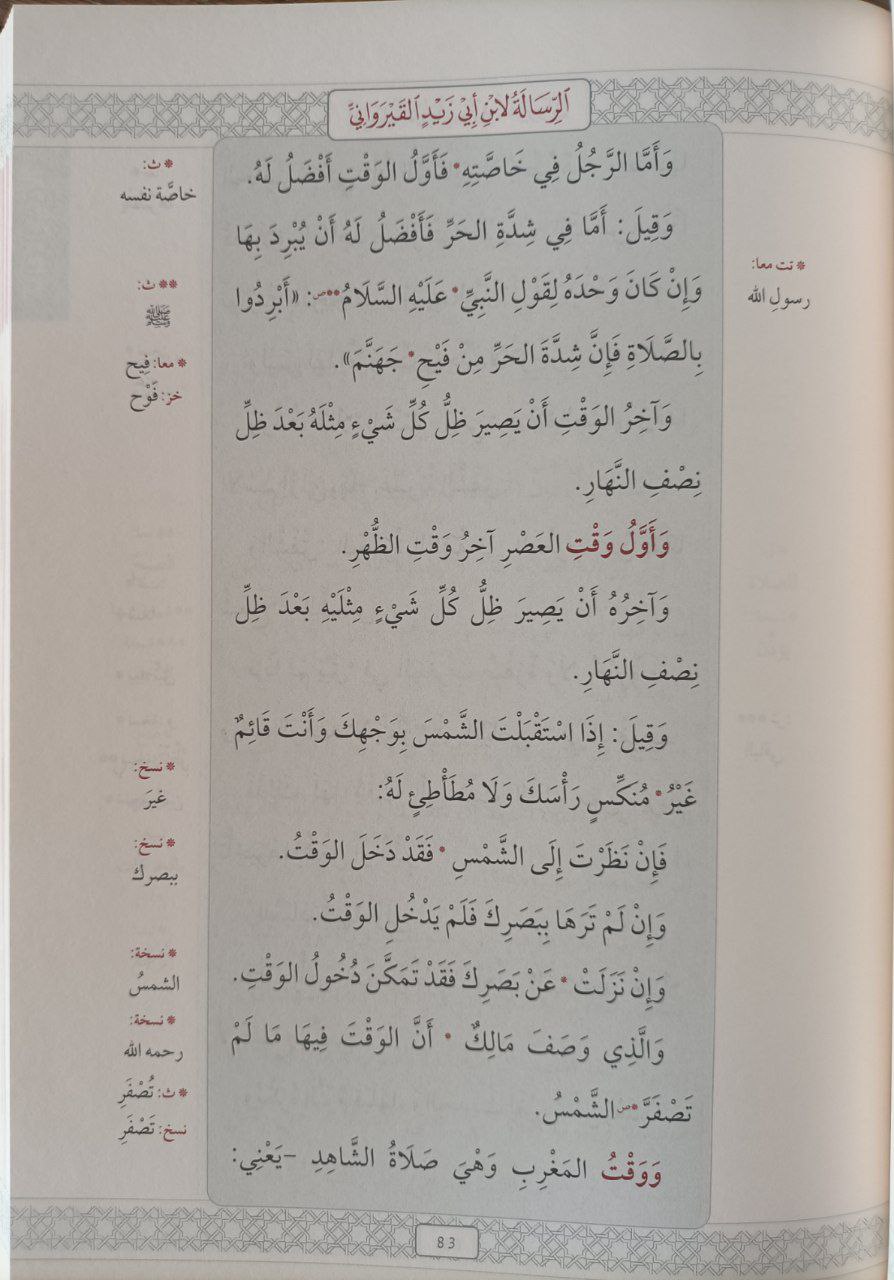 الرِّسَالَةُ لابْنِ أَبِيْ زَيْدٍ القَيْرَوَانِيِّ
وَأَمَّا الرَّجُلُ فِي خَاصَّتِهِ* فَأَوَّلُ الوَقْتِ أَفْضَلُ لَهُ.
وَقِيلَ: أَمَّا فِي شِدَّةِ الحَرِّ فَأَفْضَلُ لَهُ أَنْ يُبْرِدَ بِهَا
وَإِنْ كَانَ وَحْدَهُ لِقَوْلِ النَّبِيِّ* عَلَيْهِ السَّلَامُ**ص: «أَبْرِدُوا
بِالصَّلَاةِ فَإِنَّ شِدَّةَ الحَرِّ مِنْ فَيْحِ* جَهَنَّمَ».
وَآخِرُ الوَقْتِ أَنْ يَصِيرَ ظِلُّ كُلِّ شَيْءٍ مِثْلَهُ بَعْدَ ظِلِّ
نِصْفِ النَّهَارِ.
وَأَوَّلُ وَقْتِ العَصْرِ آخِرُ وَقْتِ الظُّهْرِ.
وَآخِرُهُ أَنْ يَصِيرَ ظِلُّ كُلِّ شَيْءٍ مِثْلَيْهِ بَعْدَ ظِلِّ
نِصْفِ النَّهَارِ.
وَقِيلَ: إِذَا اسْتَقْبَلْتَ الشَّمْسَ بِوَجْهِكَ وَأَنْتَ قَائِمٌ
غَيْرُ* مُنَكِّسٍ رَأْسَكَ وَلَا مُطَأْطِئٍ لَهُ:
فَإِنْ نَظَرْتَ إِلَى الشَّمْسِ* فَقَدْ دَخَلَ الوَقْتُ.
وَإِنْ لَمْ تَرَهَا بِبَصَرِكَ فَلَمْ يَدْخُلِ الوَقْتُ.
وَإِنْ نَزَلَتْ* عَنْ بَصَرِكَ فَقَدْ تَمَكَّنَ دُخُولُ الوَقْتِ.
وَالَّذِي وَصَفَ مَالِكٌ* أَنَّ الوَقْتَ فِيهَا مَا لَمْ
تَصْفَرَّ*ص الشَّمْسُ.
وَوَقْتُ المَغْرِبِ وَهْيَ صَلَاةُ الشَّاهِدِ -يَعْنِي:
* تت معا:
رسولِ الله
* ث:
خاصَّة نفسه
** ث:
ﷺ
* معا: فِيح
خز: فَوْح
* نسخ:
غيرَ
* نسخ:
ببصرك
* نسخة:
الشمسُ
* نسخة:
رحمه الله
* ث: تُصْفَرِ
نسخ: تَصْفَرِ
83